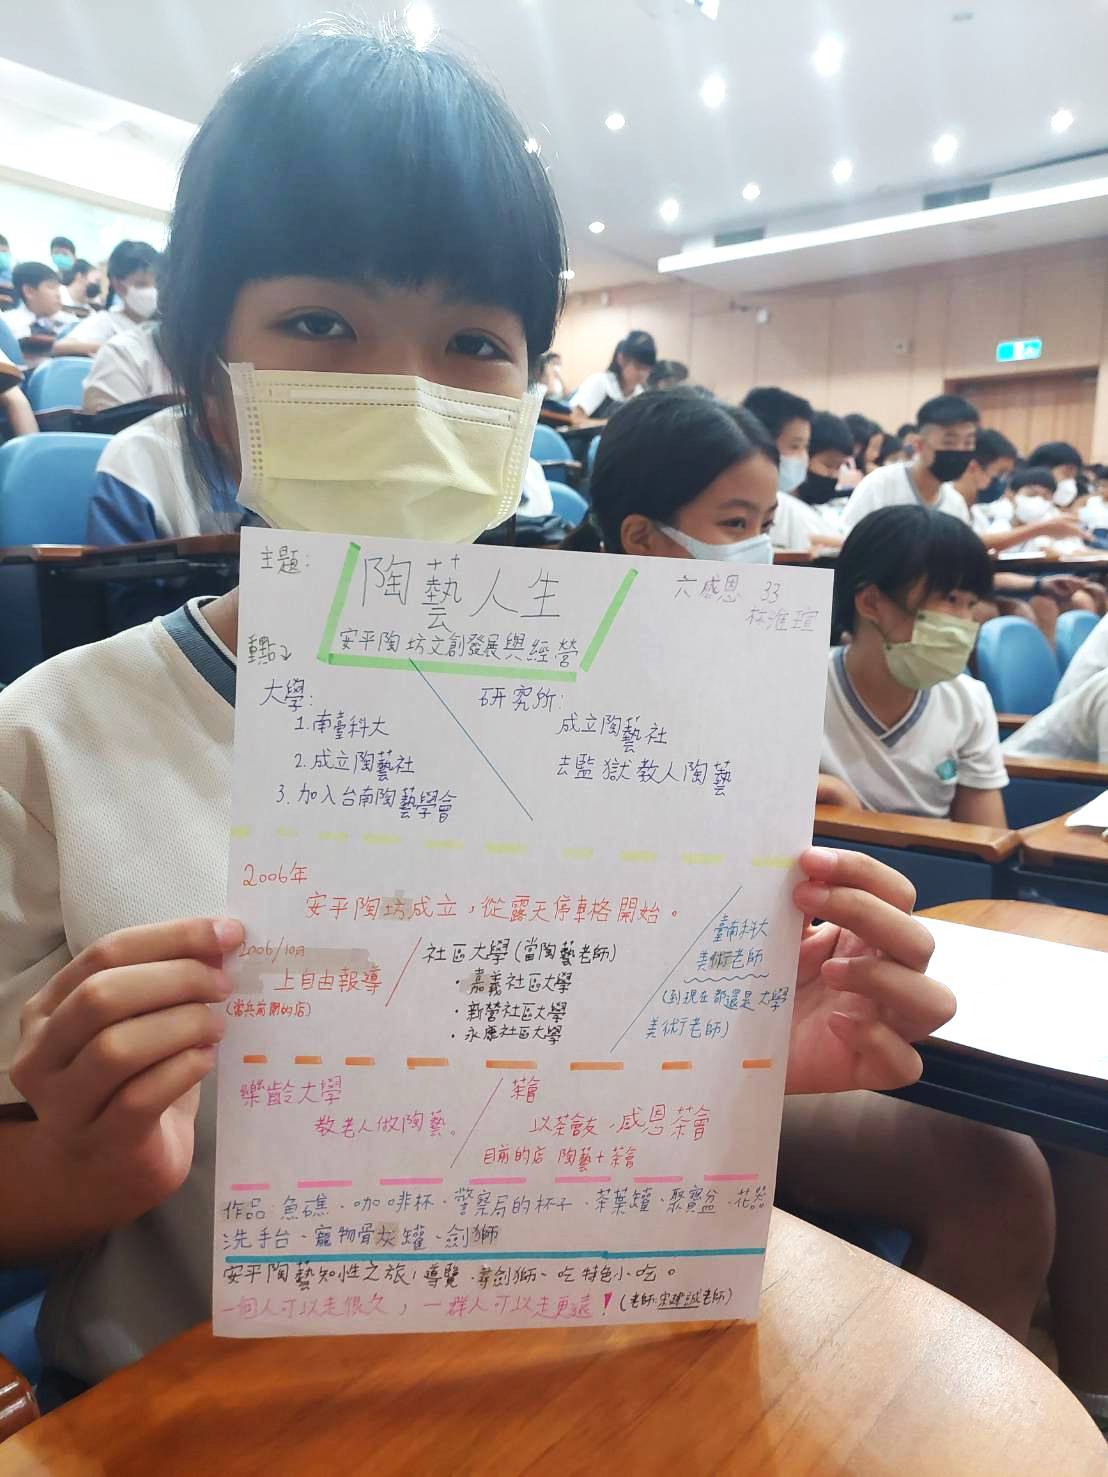 主題:
陶藝人生
六感恩 33
林淮瑄
重點↴
安平陶坊文創發展與經營
大學:
1.南臺科大
2.成立陶藝社
3.加入台南陶藝學會
研究所:
成立陶藝社
去監獄教人陶藝
2006年
安平陶坊成立，從露天停車格開始。
2006/10月
上自由報導
(當兵前開的店)
社區大學(當陶藝老師)
·嘉義社區大學
·新營社區大學
·永康社區大學
臺南科大
美術老師
(到現在都還是大學
美術老師)
樂齡大學
教老人做陶藝。
茶會
以茶會友，感恩茶會
目前的店 陶藝+茶會
作品:魚礁、咖啡杯、警察局的杯子、茶葉罐、聚寶盆、花器
洗手台、寵物骨灰罐、劍獅
安平陶藝知性之旅:導覽、尋劍獅、吃特色小吃。
一個人可以走很久，一群人可以走更遠!(老師:宋建誠老師)